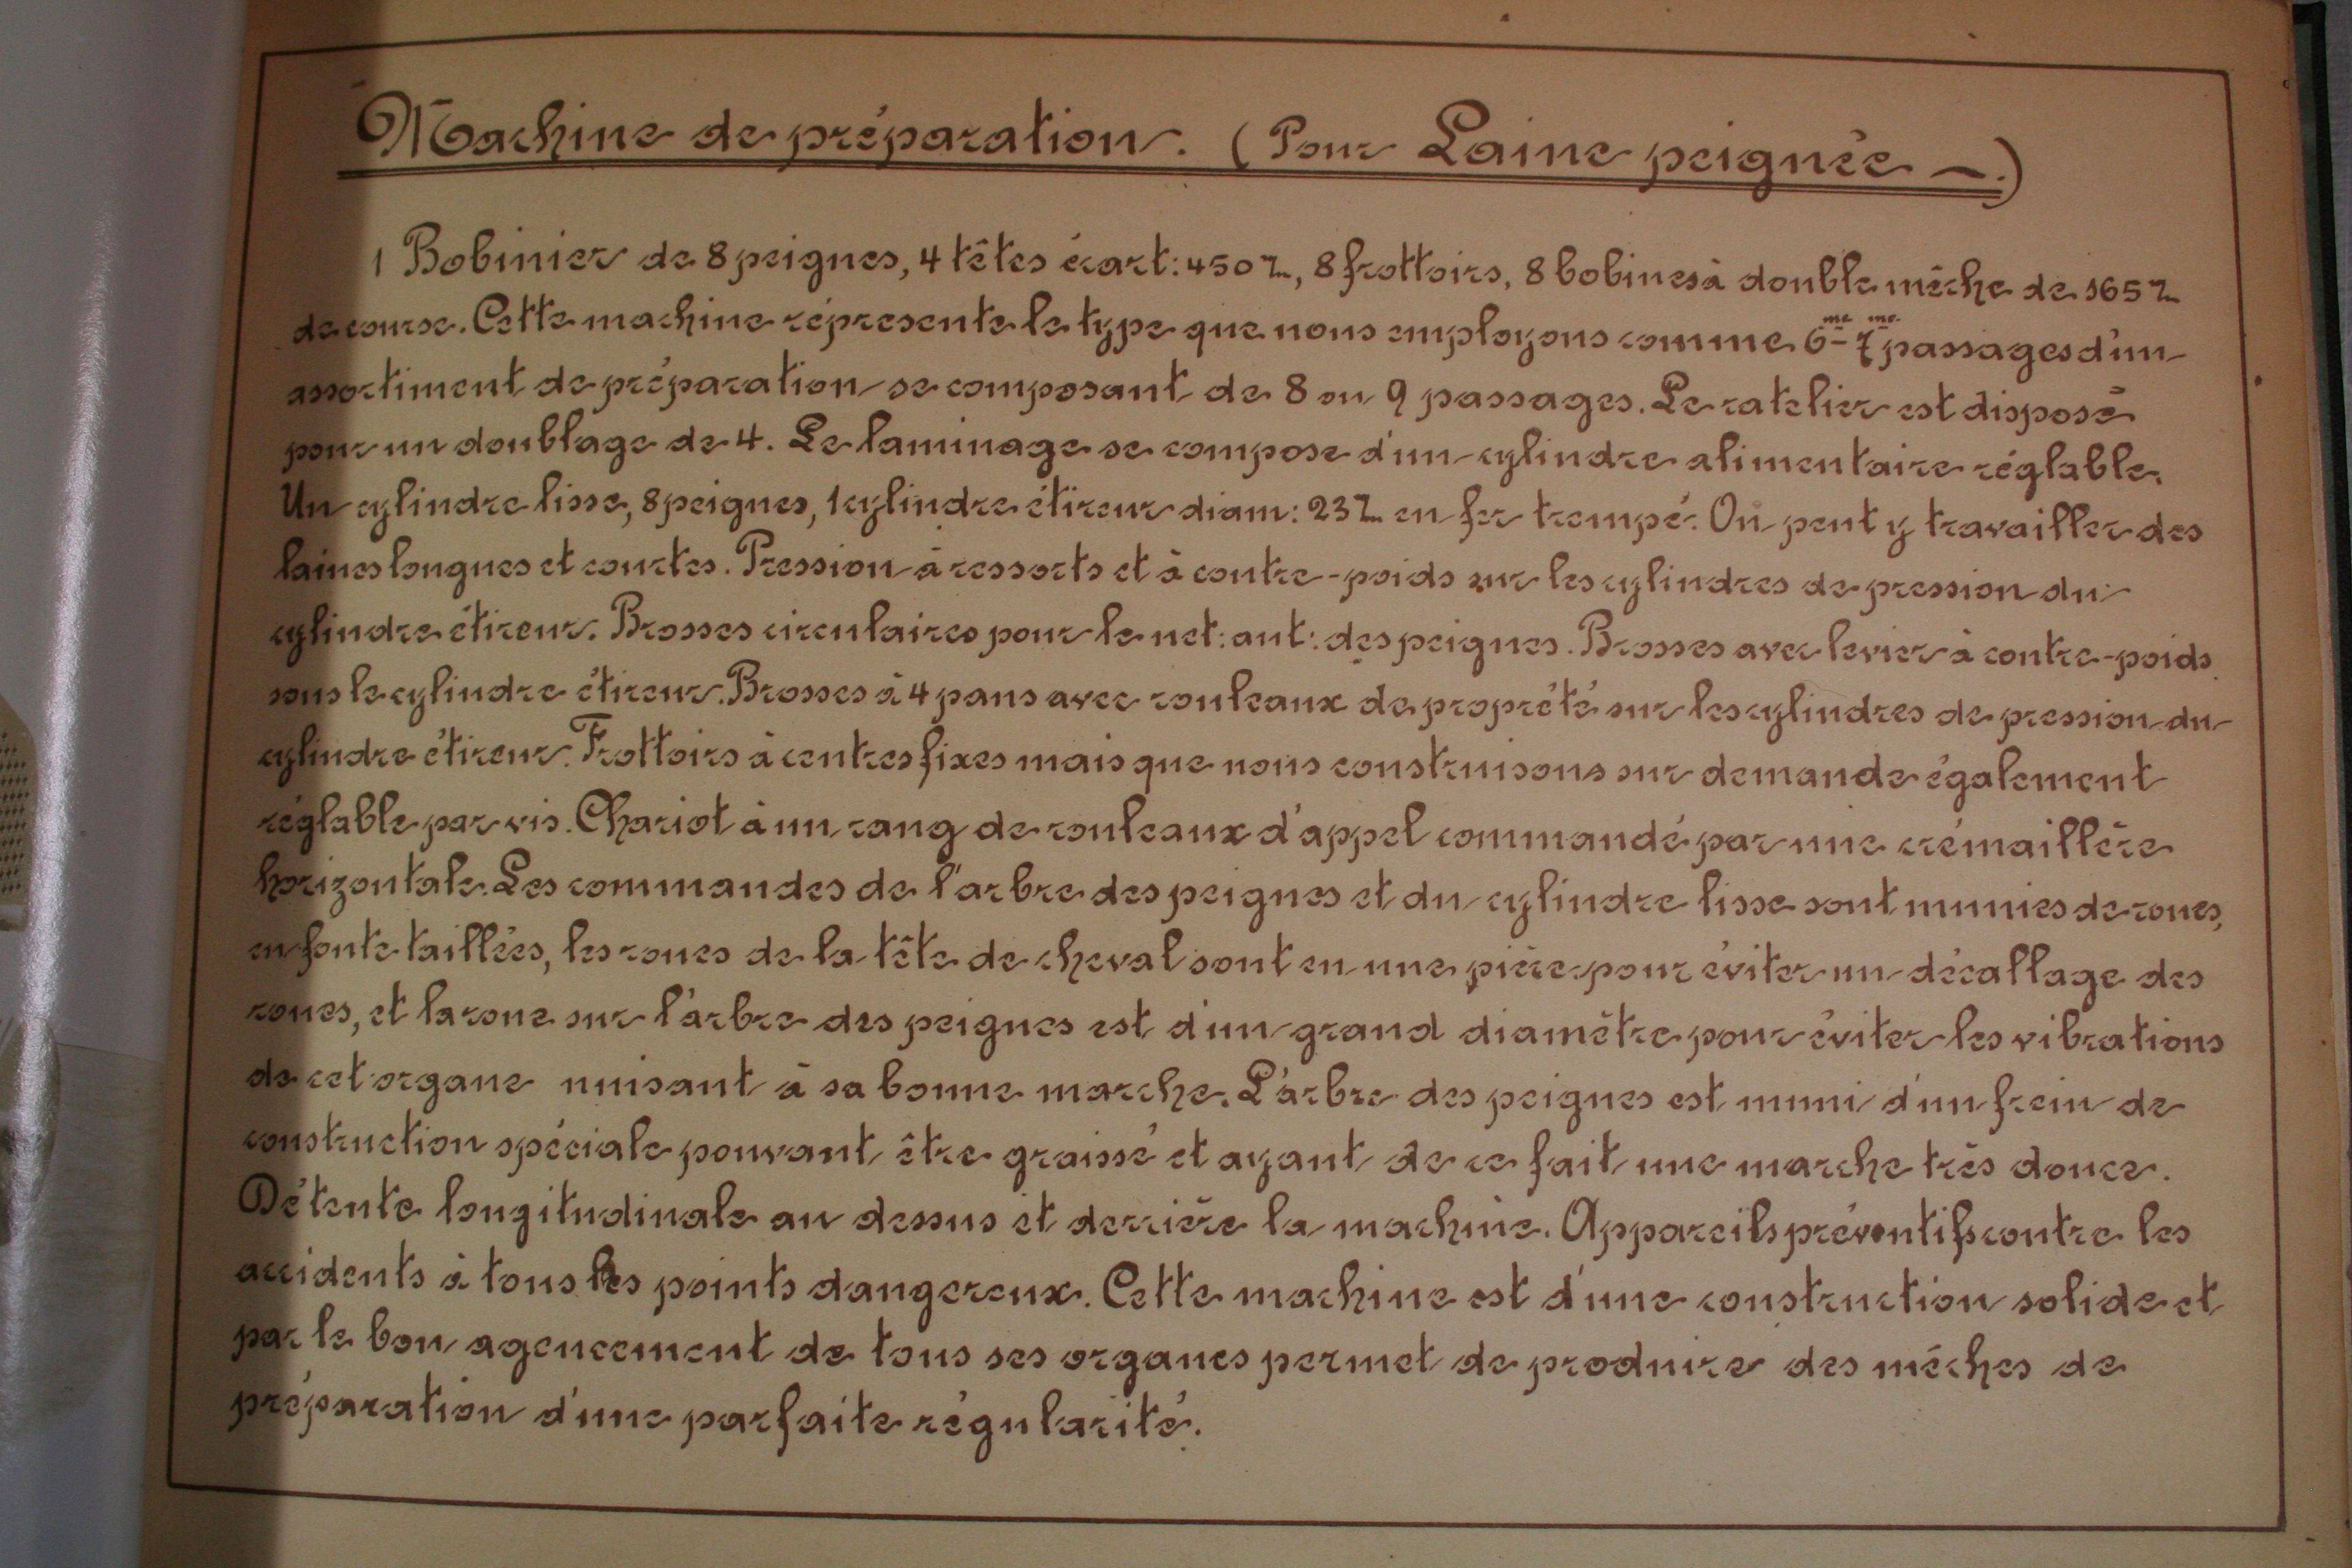 Machine de préparation. (Pour Laine peignée —.)
1 Bobinier de 8 peignes, 4 têtes écart: 450 m/m, 8 frottoirs, 8 bobines à double mêche de 165 m/m
de course. Cette machine répresente le type que nous employons comme 6me 7me passages d'un
assortiment de préparation se composant de 8 ou 9 passages. Le ratelier est disposé
pour un doublage de 4. Le laminage se compose d'un cylindre alimentaire réglable.
Un cylindre lisse, 8 peignes, 1 cylindre étireur diam: 23 m/m en fer trempé. On peut y travailler des
laines longues et courtes. Pression à ressorts et à contre-poids sur les cylindres de pression du
cylindre étireur. Brosses circulaires pour le net: ant: des peignes. Brosses avec levier à contre-poids
sous le cylindre étireur. Brosses à 4 pans avec rouleaux de propreté sur les cylindres de pression du
cylindre étireur. Frottoirs à centres fixes mais que nous construisons sur demande également
réglable par vis. Chariot à un rang de rouleaux d'appel commandé par une crémaillère
horizontale. Les commandes de l'arbre des peignes et du cylindre lisse sont munies de roues,
en fonte taillées, les roues de la tête de cheval sont en une pièce pour éviter un décallage des
roues, et la roue sur l'arbre des peignes est d'un grand diamètre pour éviter les vibrations
de cet organe nuisant à sa bonne marche. L'arbre des peignes est muni d'un frein de
construction spéciale pouvant être graissé et ayant de ce fait une marche très douce.
Détente longitudinale au dessus et derrière la machine. Appareils préventifs contre les
accidents à tous les points dangereux. Cette machine est d'une construction solide et
par le bon agencement de tous ses organes permet de produire des mêches de
préparation d'une parfaite régularité.